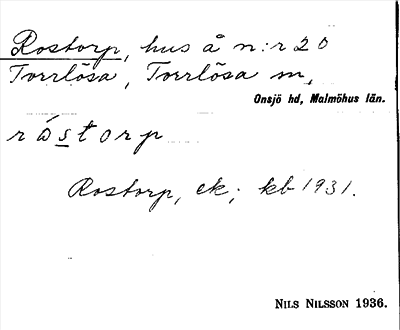 Rostorp, hus å n:r 20
Torrlösa, Torrlösa sn,
Onsjö hd, Malmöhus län.
rós̲torp
Rostorp, ek; kb 1931.
NILS NILSSON 1936.